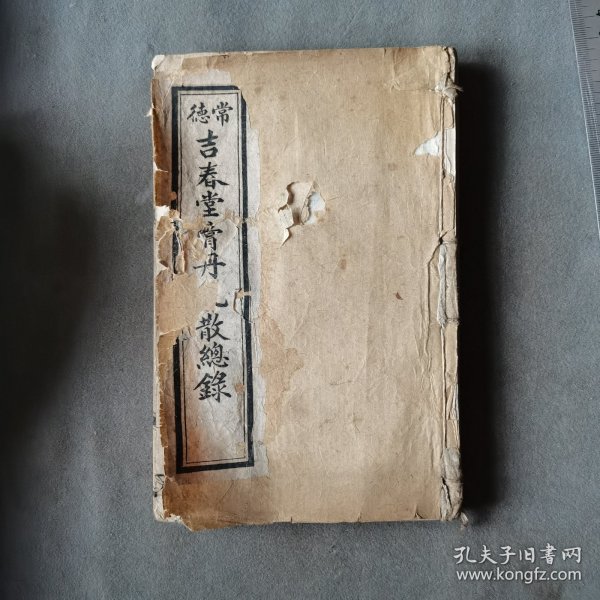 常德
吉春堂膏丹丸散總錄
孔夫子旧書网
www.kongfz.com